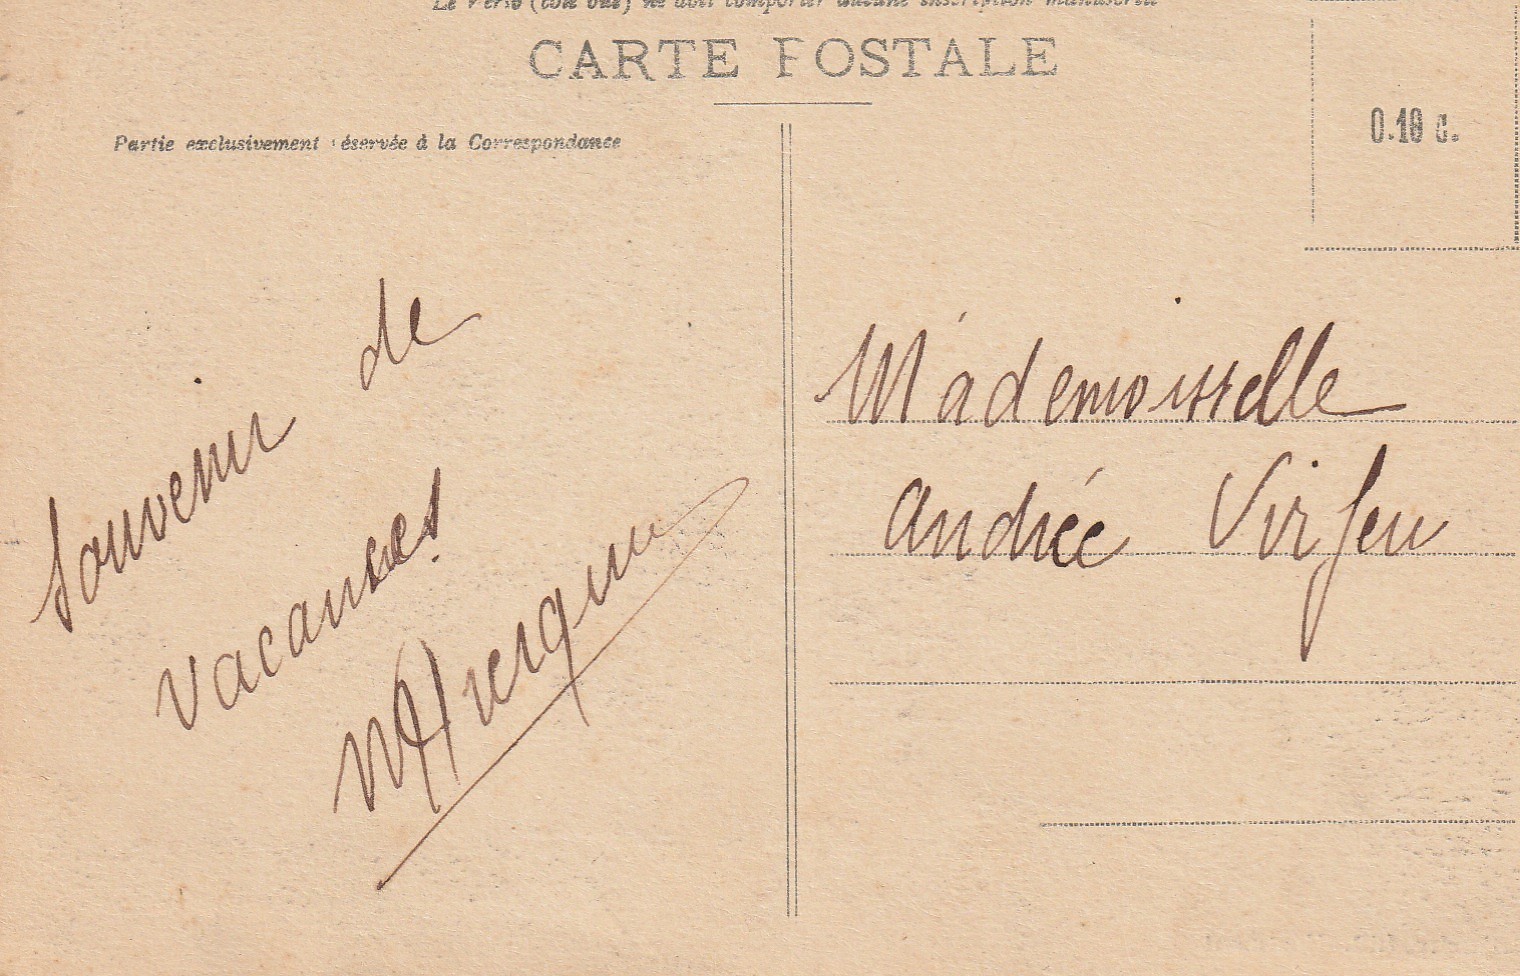 Le Verso (côté vue) ne doit comporter aucune inscription manuscrite
CARTE POSTALE
Partie exclusivement réservée à la Correspondance
0.10 c.
Souvenir de
vacances.
Mademoiselle
Andrée